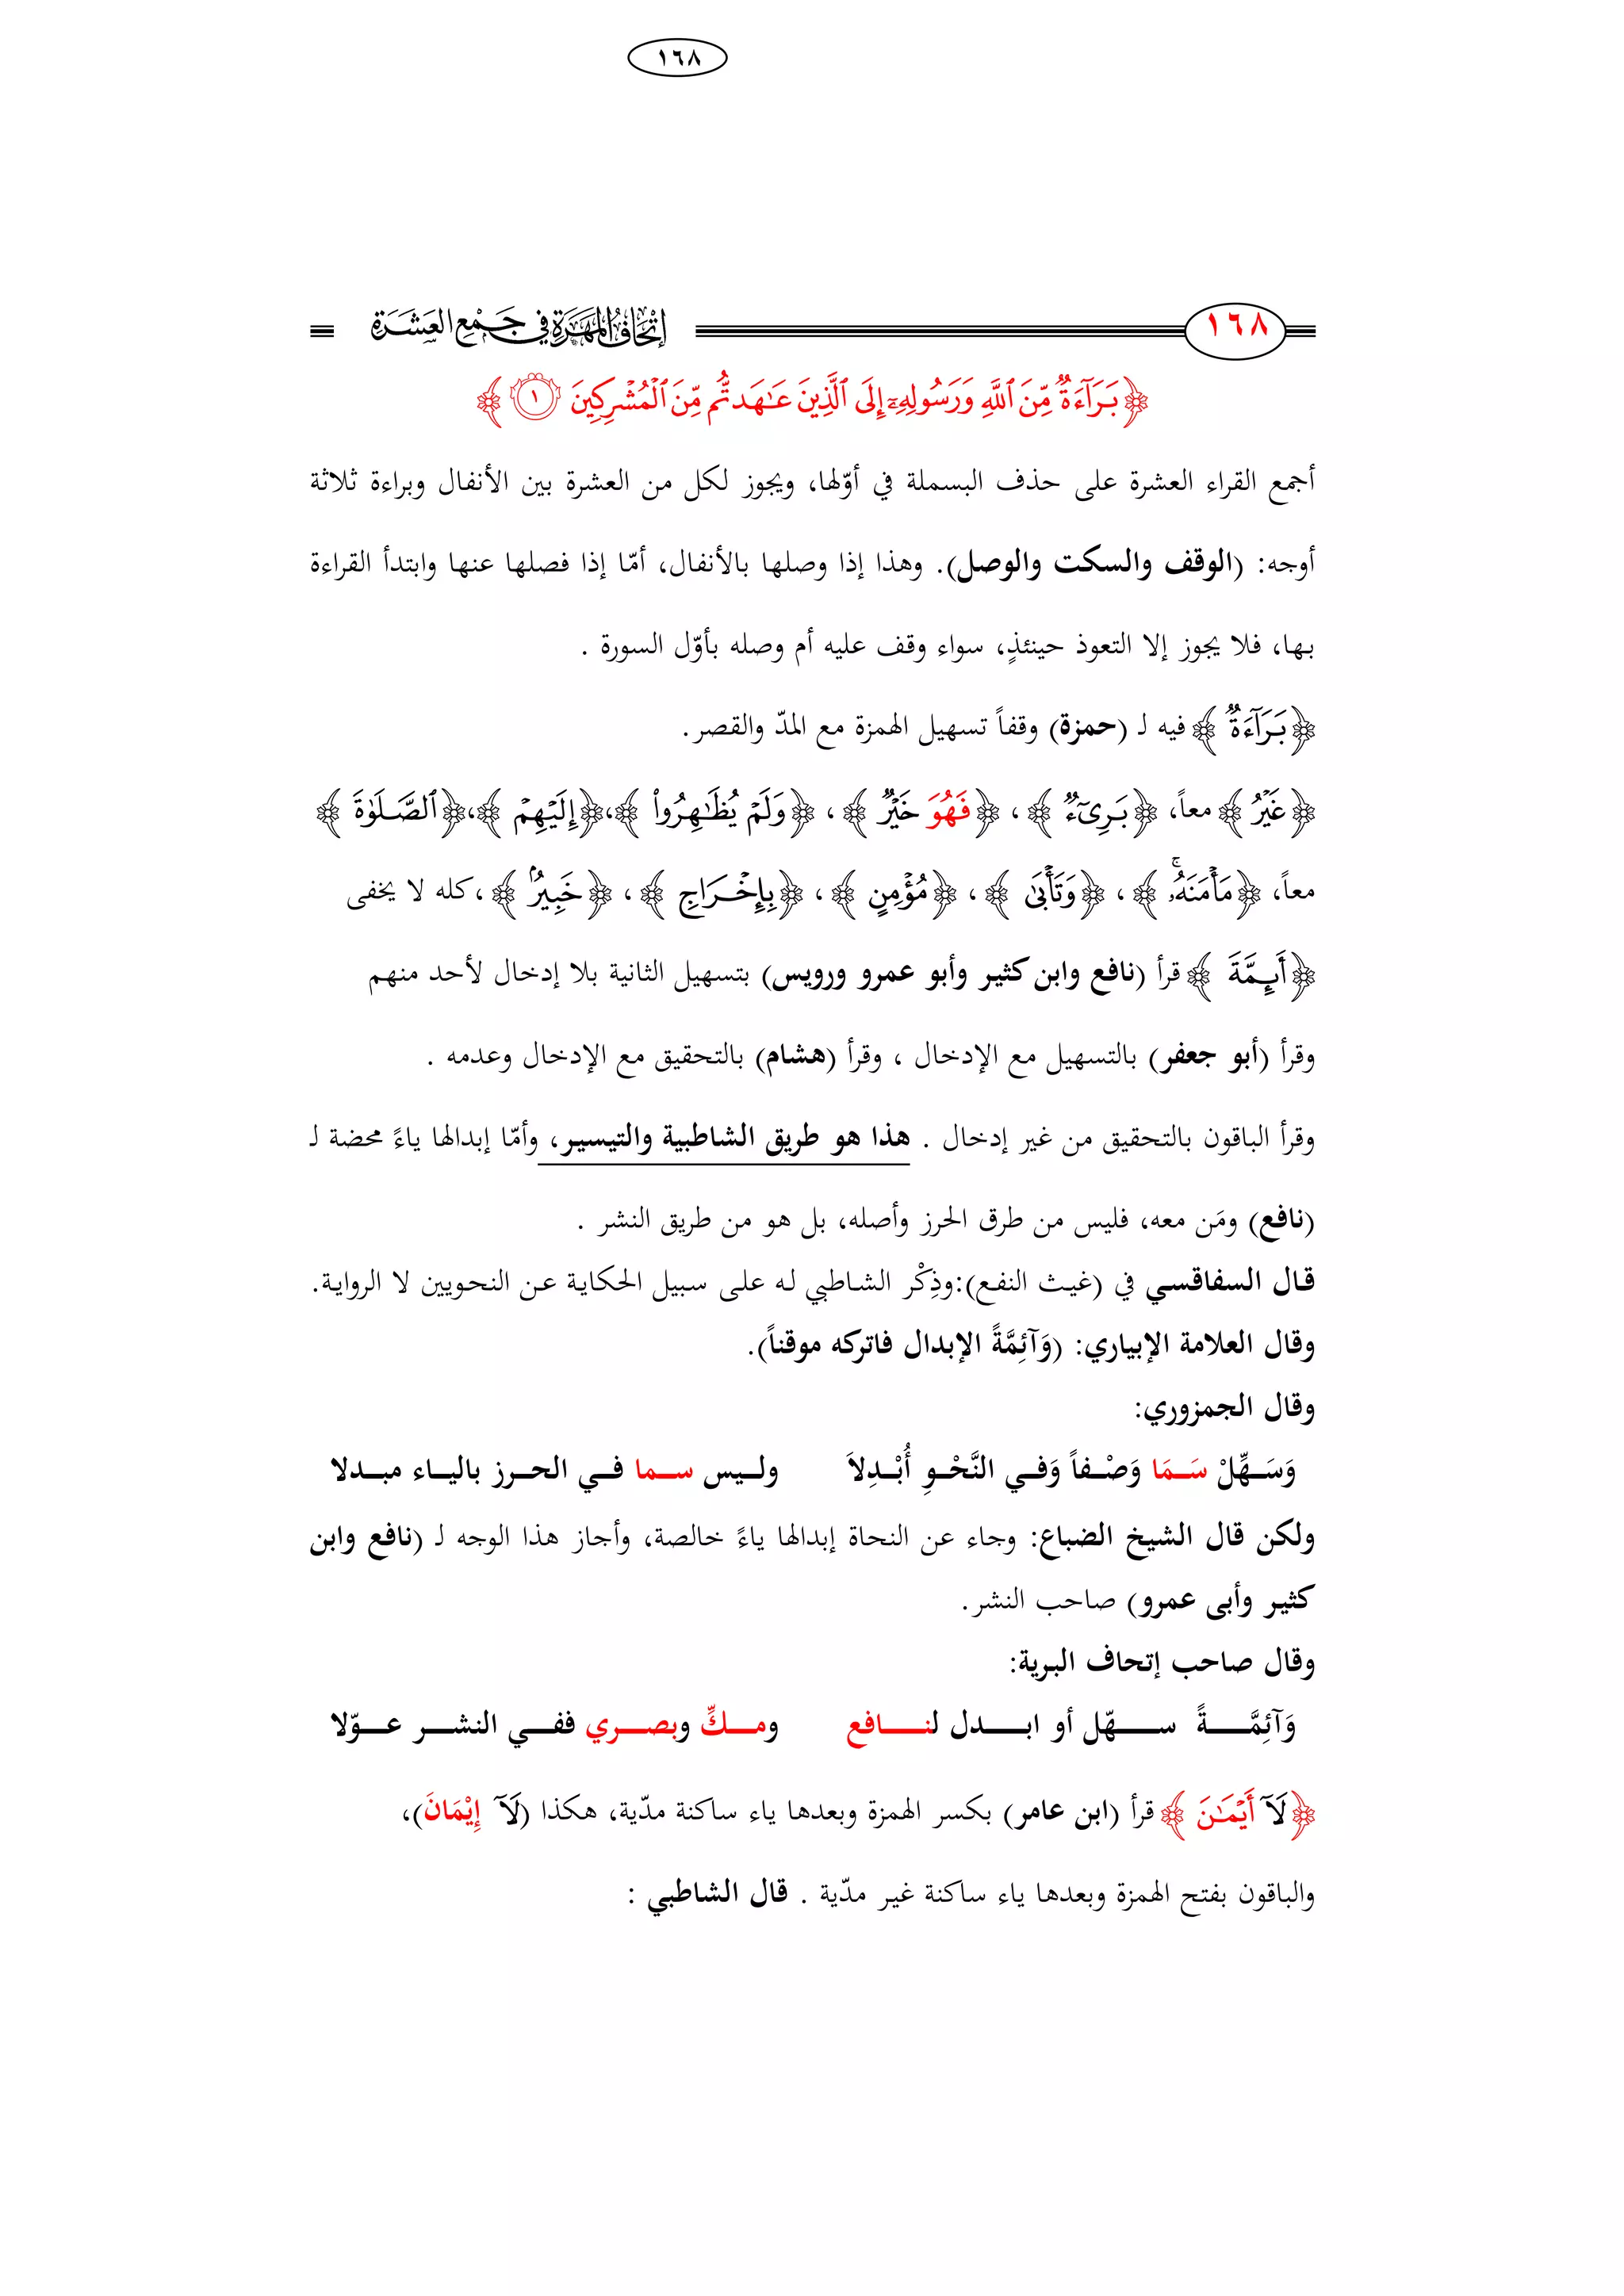 ١٦٨
١٦٨ إِتْحَافُ الْمَهَرَةِ فِي جَمْعِ الْعَشَرَةِ
﴿ بَرَآءَةٞ مِّنَ ٱللَّهِ وَرَسُولِهِۦٓ إِلَى ٱلَّذِينَ عَٰهَدتُّم مِّنَ ٱلۡمُشۡرِكِينَ ١ ﴾
أجمع القراء العشرة على حذف البسملة في أوّلها، ويجوز لكل من العشرة بين الأنفال وبراءة ثلاثة
أوجه: (الوقف والسكت والوصل). وهذا إذا وصلها بالأنفال، أمّا إذا فصلها عنها وابتدأ القراءة
بها، فلا يجوز إلا التعوذ حينئذٍ، سواء وقف عليه أم وصله بأوّل السورة .
﴿ بَرَآءَةٞ ﴾ فيه لـ (حمزة) وقفاً تسهيل الهمزة مع المدّ والقصر.
﴿ غَيۡرُ ﴾ معاً، ﴿ بَرِيٓءٞ ﴾ ، ﴿ فَهُوَ خَيۡرٞ ﴾ ، ﴿ وَلَمۡ يُظَٰهِرُواْ ﴾،﴿ إِلَيۡهِمۡ ﴾،﴿ ٱلصَّلَوٰةَ ﴾
معاً، ﴿ مَأۡمَنَهُۥۚ ﴾ ، ﴿ وَتَأۡبَىٰ ﴾ ، ﴿ مُؤۡمِنٍ ﴾ ، ﴿ بِإِخۡرَاجِ ﴾ ، ﴿ خَبِيرُۢ ﴾ ،كله لا يخفى
﴿ أَئِمَّةَ ﴾ قرأ (نافع وابن كثير وأبو عمرو ورويس) بتسهيل الثانية بلا إدخال لأحد منهم
وقرأ (أبو جعفر) بالتسهيل مع الإدخال ، وقرأ (هشام) بالتحقيق مع الإدخال وعدمه .
وقرأ الباقون بالتحقيق من غير إدخال . هذا هو طريق الشاطبية والتيسير، وأمّا إبدالها ياءً محضة لـ
(نافع) ومَن معه، فليس من طرق الحرز وأصله، بل هو من طريق النشر .
قال السفاقسي في (غيث النفع):وذِكْر الشاطبي له على سبيل الحكاية عن النحويين لا الرواية.
وقال العلامة الإبياري: (وَآئِمَّةً الإبدال فاتركه موقناً).
وقال الجمزوري:
وَسَهِّلْ سَمَا وَصْفاً وَفي النَّحْوِ أُبْدِلَا وليس سما في الحرز بالياء مبدلا
ولكن قال الشيخ الضباع: وجاء عن النحاة إبدالها ياءً خالصة، وأجاز هذا الوجه لـ (نافع وابن
كثير وأبى عمرو) صاحب النشر.
وقال صاحب إتحاف البرية:
وَآئِمَّةً سهّل أو ابدل لنافع ومكٍّ وبصري ففي النشر عوّلا
﴿ لَآ أَيۡمَٰنَ ﴾ قرأ (ابن عامر) بكسر الهمزة وبعدها ياء ساكنة مدّية، هكذا (لَآ إِيْمَانَ)،
والباقون بفتح الهمزة وبعدها ياء ساكنة غير مدّية . قال الشاطبي :